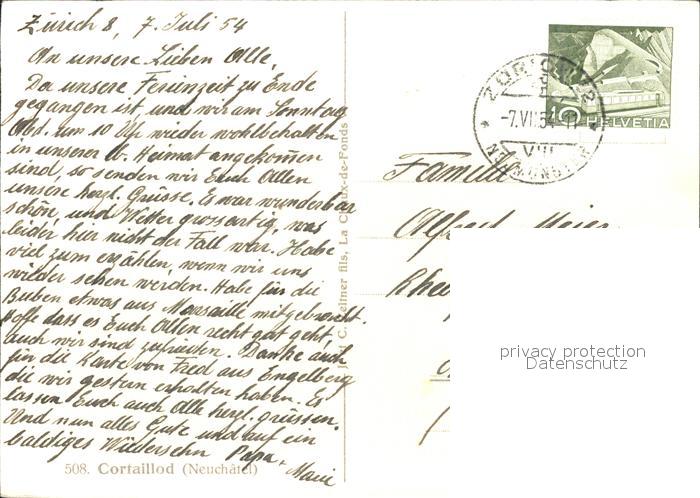 Zürich 8, 7. Juli 54
An unsere Lieben Alle.
Da unsere Ferienzeit zu Ende
gegangen ist, und wir am Sonntag
Abd. um 10 Uhr wieder wohlbehalten
in unserer lb. Heimat angekommen
sind, so senden wir Euch Allen
unsere herzl. Grüsse. Es war wunderbar
schön, und Wetter grossartig, was
leider hier nicht der Fall war. Habe
viel zum erzählen, wenn wir uns
wieder sehen werden. Habe für die
Buben etwas aus Marseille mitgebracht.
Hoffe dass es Euch Allen recht gut geht,
auch wir sind zufrieden. Danke auch
für die Karte von Fred aus Engelberg
die wir gestern erhalten haben. Es
lassen Euch auch Alle herzl. grüssen.
Und nun alles Gute und auf ein
baldiges Wiedersehn Papa +
Mami
508. Cortaillod (Neuchâtel)
C. Zeltner fils, La Chaux-de-Fonds
HELVETIA
ZÜRICH
-7.VII.54
VIII
Familie
Alfred Meier
privacy protection
Datenschutz